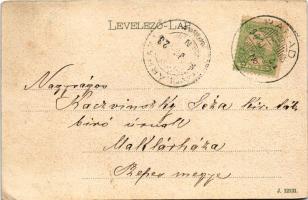 LEVELEZŐ-LAP.
Nagyságos
Kaczvinszky Géza kir. táb.
biró úrnak
Maklárháza
Szepes megye
J. 12131.